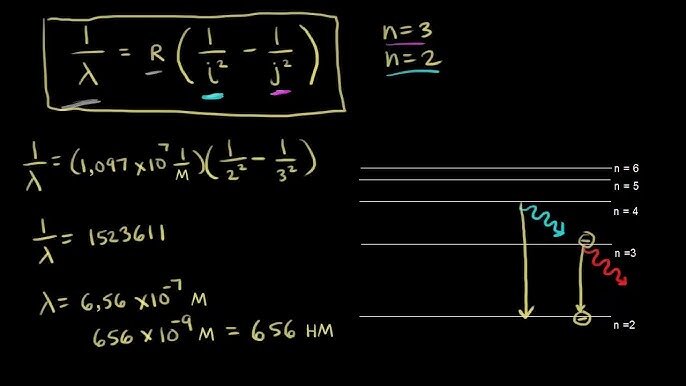 1/λ = R (1/i² - 1/j²)
n=3
n=2
1/λ = (1,097 × 10⁷ 1/M)(1/2² - 1/3²)
1/λ = 1523611
λ = 6,56 × 10⁻⁷ M
656 × 10⁻⁹ M = 656 HM
n = 6
n = 5
n = 4
n =3
n =2